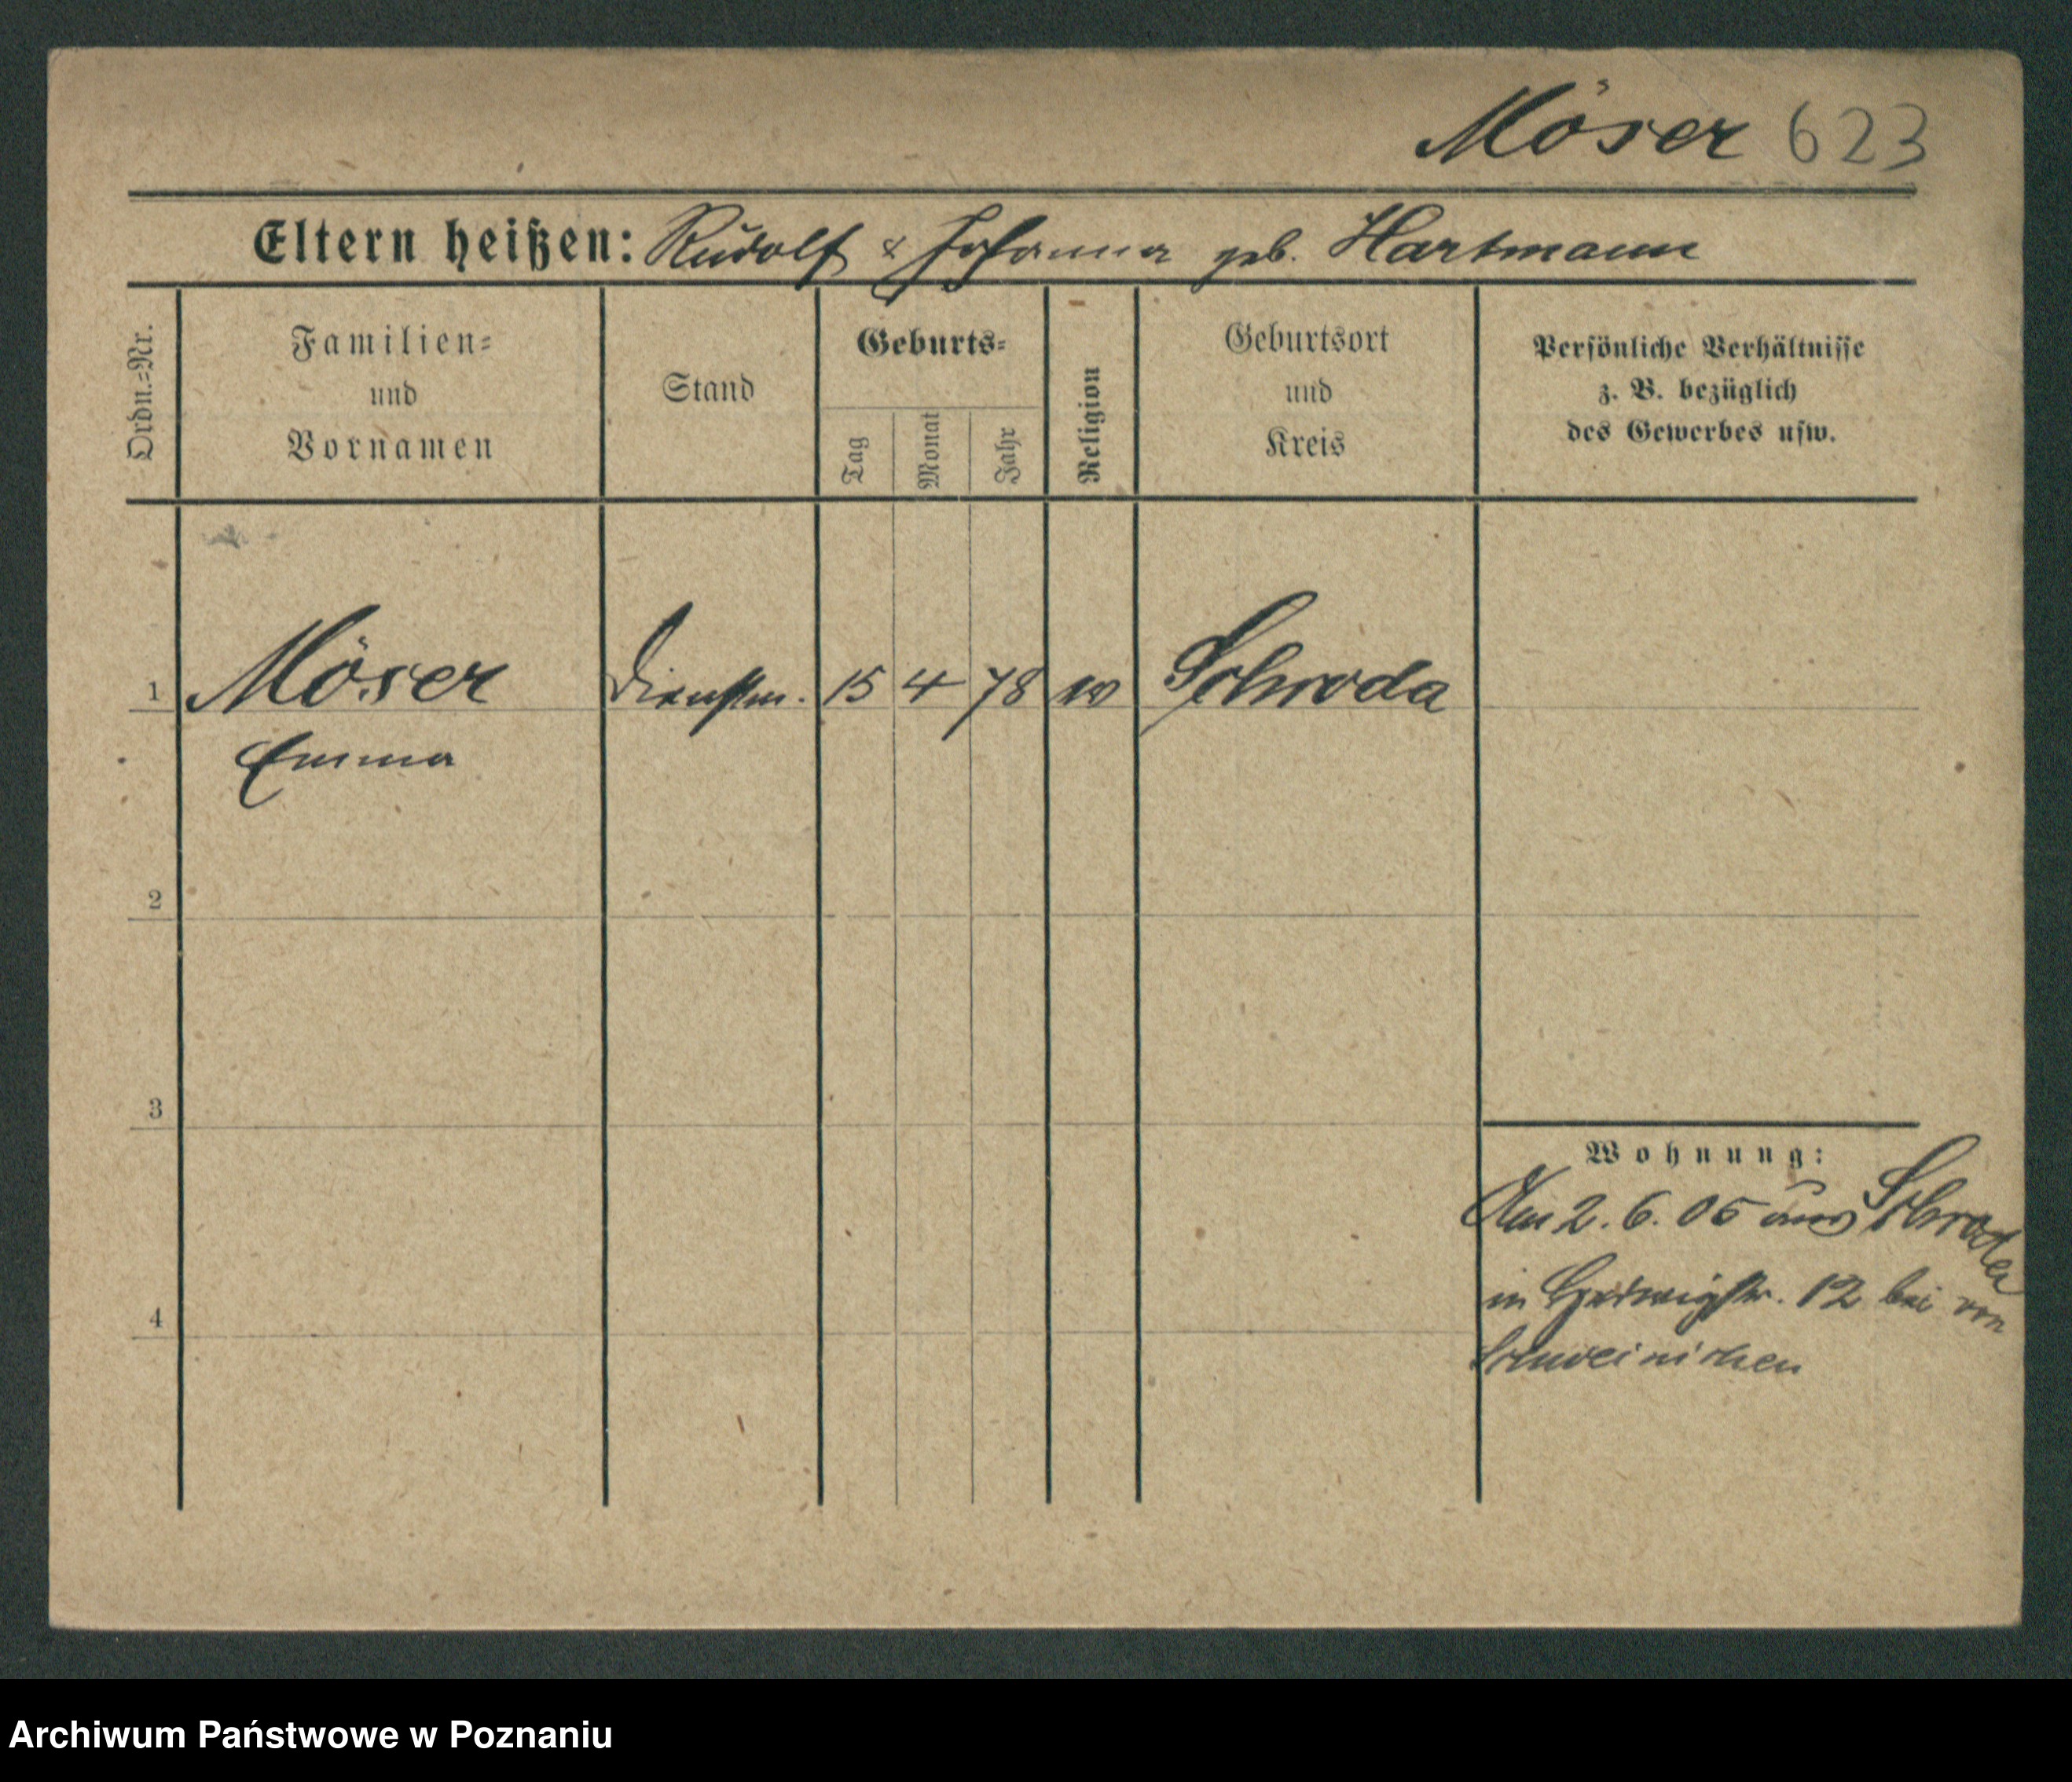 Möser 623
Eltern heißen: Rudolf & Johanna geb. Hartmann
Ordn.=Nr.
Familien=
und
Vornamen
Stand
Geburts=
Tag
Monat
Jahr
Religion
Geburtsort
und
Kreis
Persönliche Verhältnisse
z. B. bezüglich
des Gewerbes usw.
1 Möser Dienstm. 15 4 78 Schroda
Emma
2
3
Wohnung:
Am 2. 6. 05 aus Schroda
in Hedwigstr. 12 bei von
4
Schweinichen
Archiwum Państwowe w Poznaniu